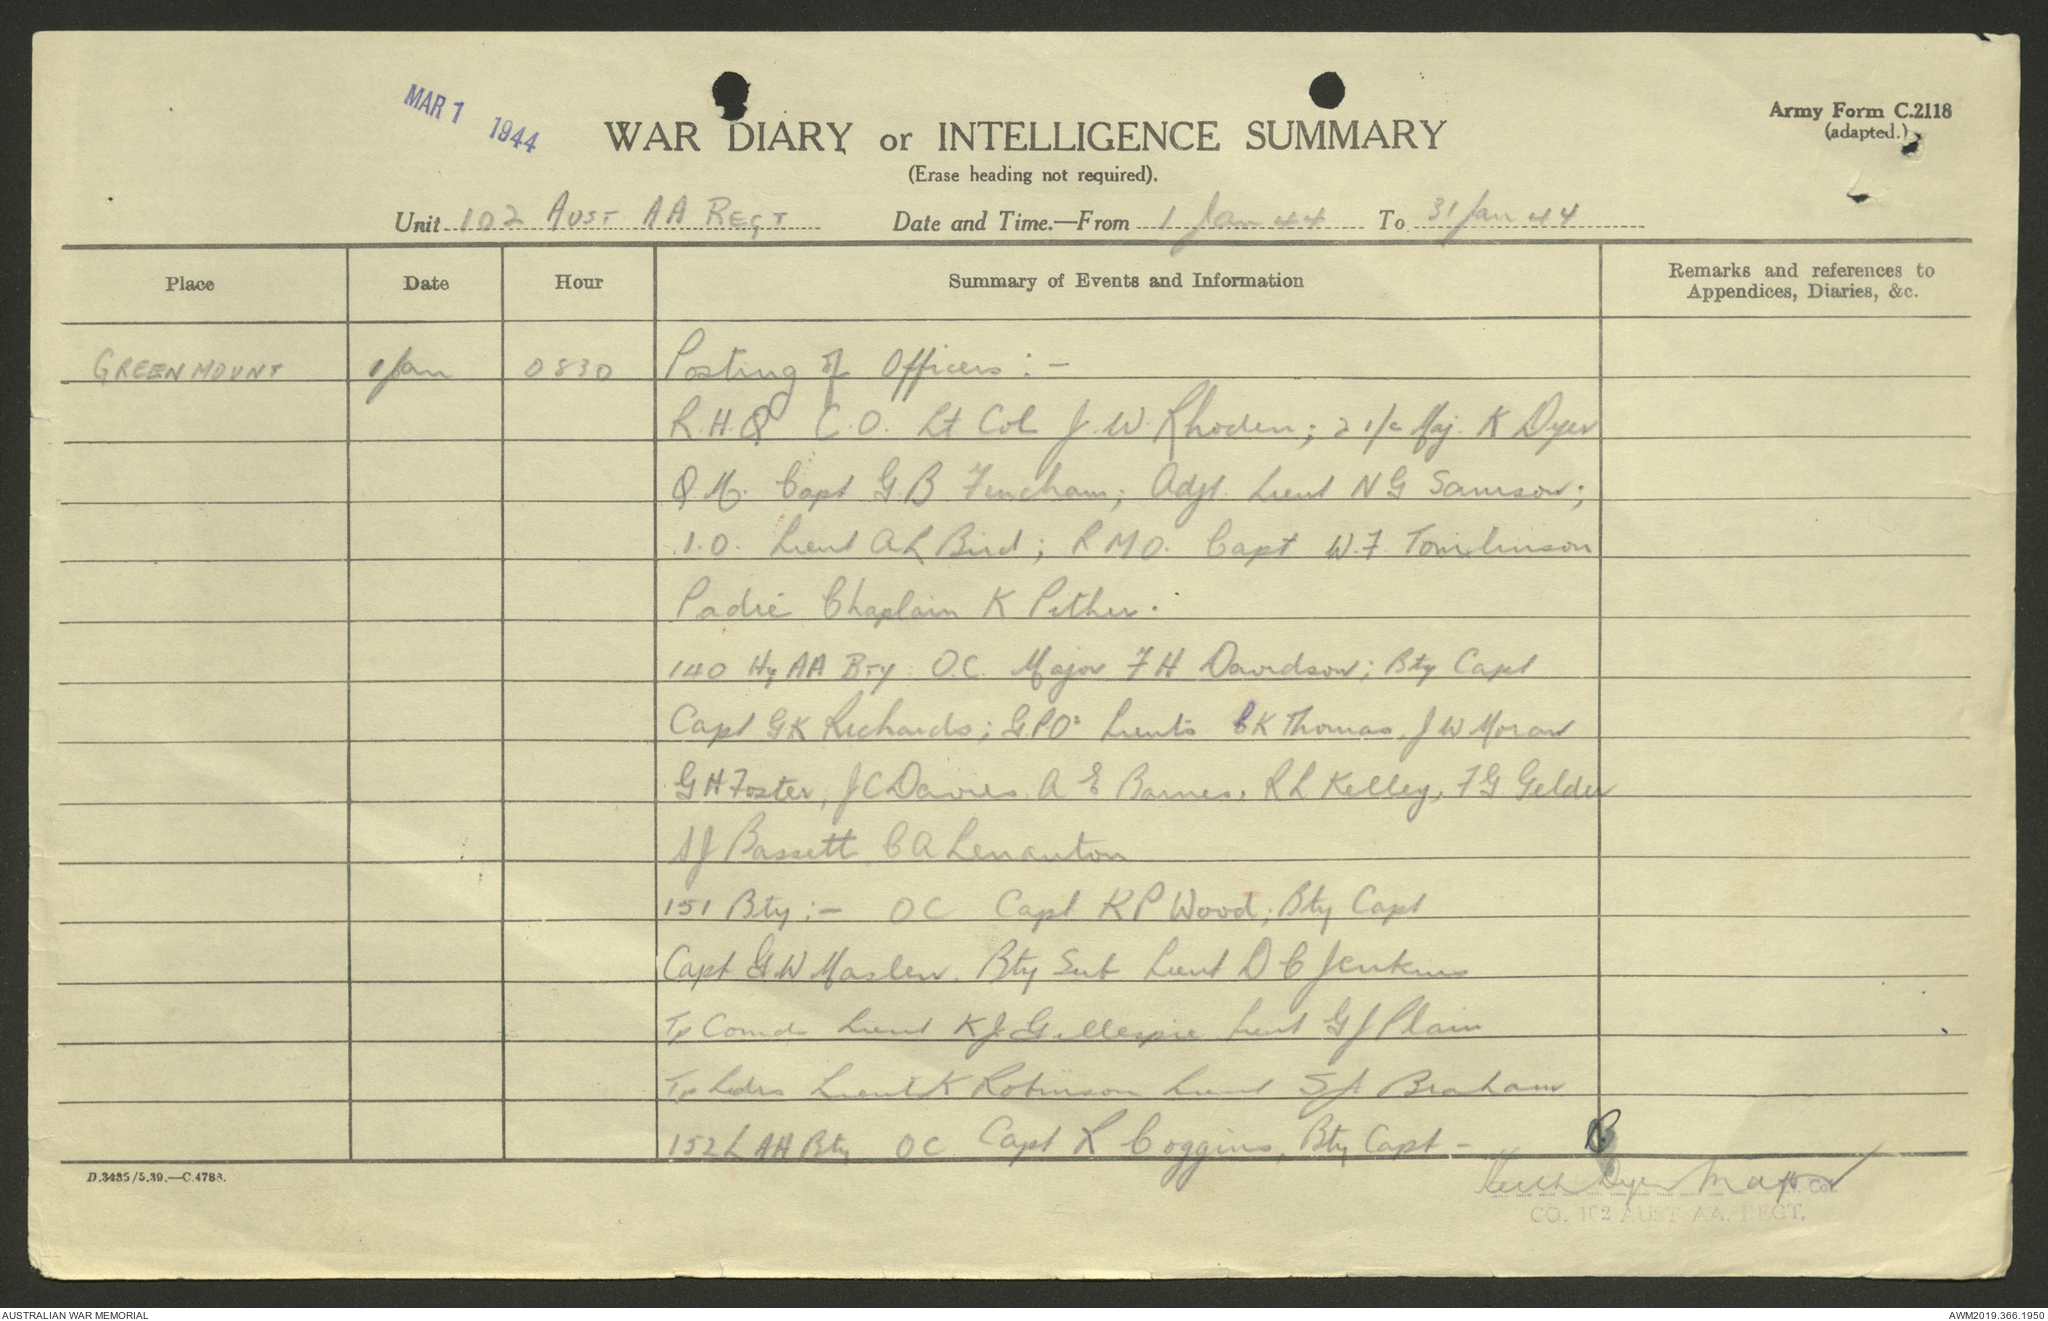 MAR 1 1944
WAR DIARY or INTELLIGENCE SUMMARY
(Erase heading not required).
Army Form C.2118
(adapted.)
Unit 102 AUST AA REGT Date and Time.—From 1 Jan 44 To 31 Jan 44
Place Date Hour Summary of Events and Information Remarks and references to
Appendices, Diaries, &c.
GREENMOUNT 1 Jan 0830 Posting of Officers :-
R.H.Q C.O. Lt Col J.W. Rhoden; 2 i/c Maj. K Dyer
Q.M. Capt G B Fincham; Adjt. Lieut N G Samson;
I.O. Lieut A L Bird; R M O. Capt W.F. Tomlinson
Padre Chaplain K Pither.
140 Hy AA Bty O.C. Major F H Davidson; Bty Capt
Capt G K Richards; G.P.O's Lieuts C K Thomas, J W Moran
G H Foster, J C Davies A E Barnes, R L Kelley, F G Gelder
A J Bassett, C A Lenanton
151 Bty :- OC Capt R P Wood; Bty Capt
Capt G.W Maslen. Bty Sub Lieut D C Jenkins
Tp Comds Lieut K J Gillespie Lieut G J Plain
Tp Ldrs Lieut K Robinson Lieut Braham
152 L AA Bty OC Capt L Coggins, Bty Capt -
D.3435/5.39.—C.4788.
Keith Dyer Major
Lt. Col.
CO. 102 AUST AA. REGT.
AUSTRALIAN WAR MEMORIAL
AWM2019.366.1950